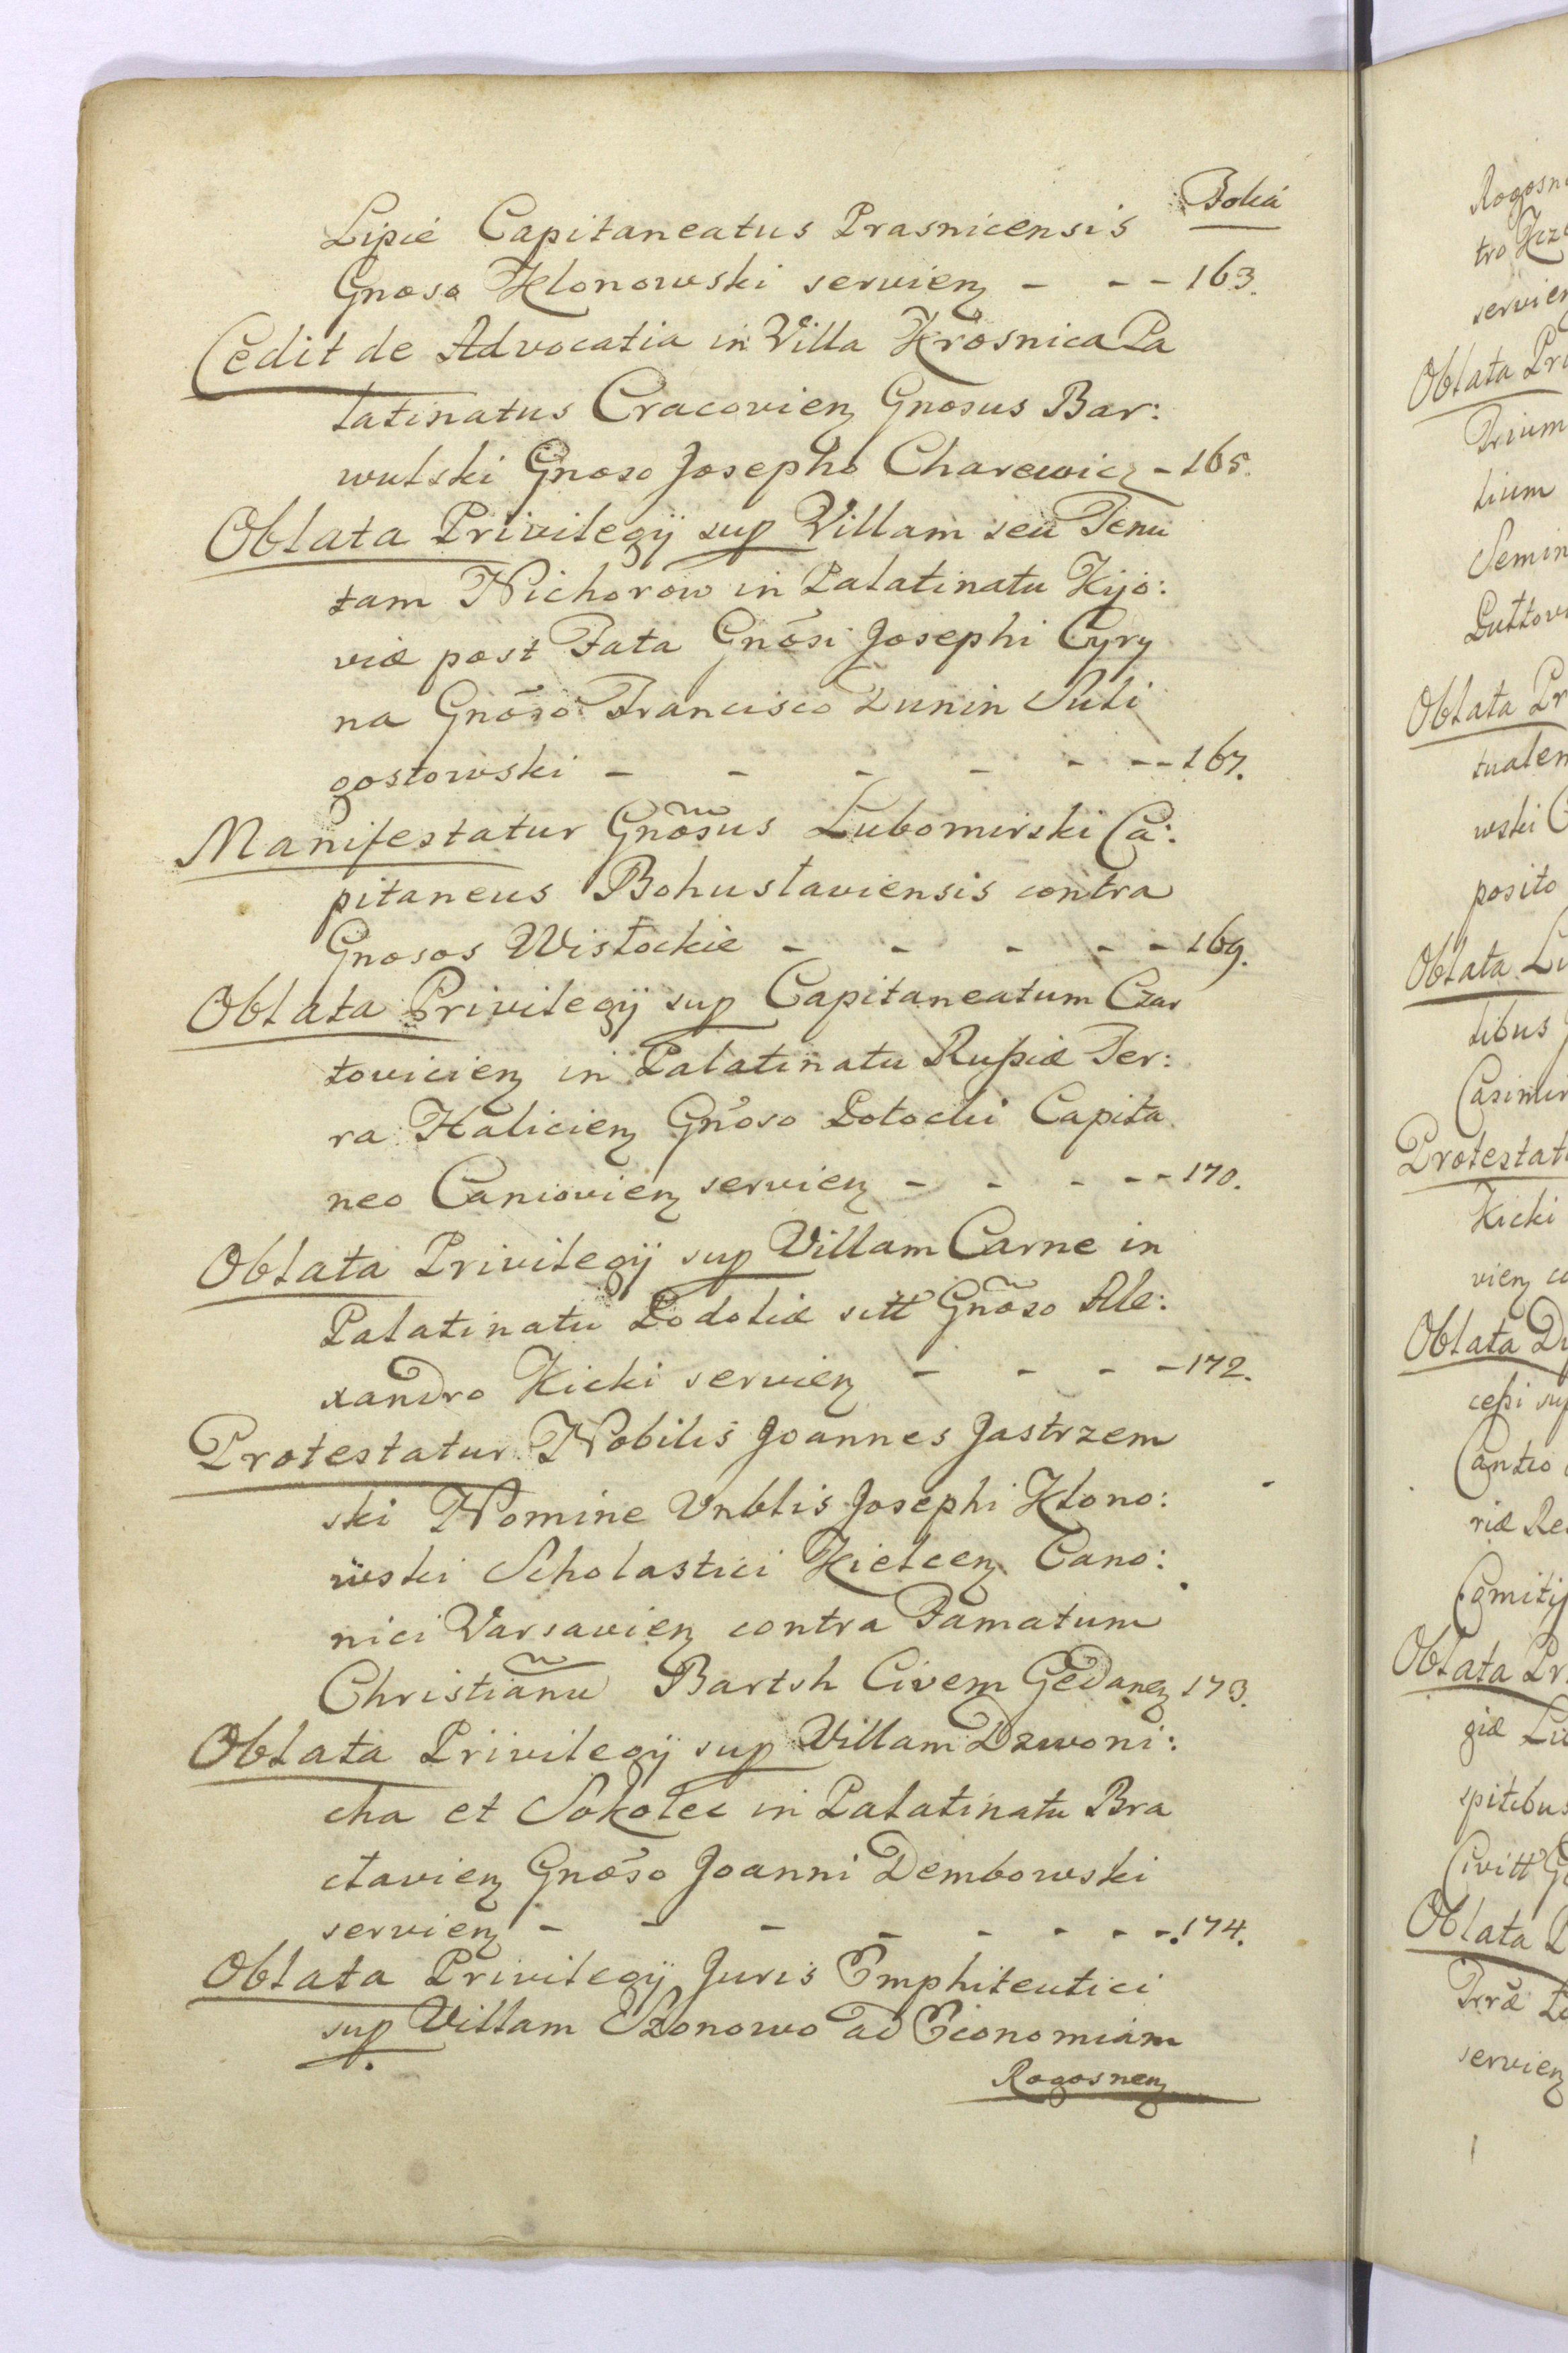 Folia
Lipie Capitaneatus Prasnicensis
Gnoso Klonowski servien - - - 163.
Cedit de Advocatia in Villa Krosnica Pa
latinatus Cracovien Gnosus Bar:
wulski Gnoso Josepho Charewicz - 165.
Oblata Privilegij sup Villam seu Tenu
tam Nichorow in Palatinatu Kijo:
viæ post Fata Gnõsi Josephi Cyry
na Gnõso Francisco Łunin Suli
gostowski - - - - - - - 167.
Manifestatur Gnõsus Lubomirski Ca:
pitaneus Bohuslaviensis contra
Gnosos Wisłockie - - - - - 169.
Oblata Privilegij sup Capitaneatum Czar
tovicien in Palatinatu Rußiæ Ter:
ra Halicien Gnõso Potocki Capita
neo Caniovien servien - - - - - 170.
Oblata Privilegij sup Villam Carne in
Palatinatu Podoliæ sitt Gnõso Ale:
xandro Kicki servien - - - - 172.
Protestatur Nobilis Joannes Jastrzem
ski Nomine Vnblis Josephi Klono:
wski Scholastici Kielcen Cano:
nici Varsavien contra Famatum
Christianũ Bartsh Civem Gedanen 173.
Oblata Privilegij sup Villam Dzwoni:
cha et Sokolec in Palatinatu Bra
clavien Gnõso Joanni Dembowski
servien - - - - - - - - 174.
Oblata Privilegij Juris Emphiteutici
sup Villam Szonowo ad Economiam
Rogosnen
Rogosn
tro
servien
Oblata Pri
Trium
lium
Semin
Oblata Pr
tualem
wski C
posito
Oblata Li
libus
Casimir
Protestat
Kicki
vien
Oblata
ceßi sup
riæ Re
Comitij
Oblata Pr
giæ
spitibus
Civitt
Oblata
servien